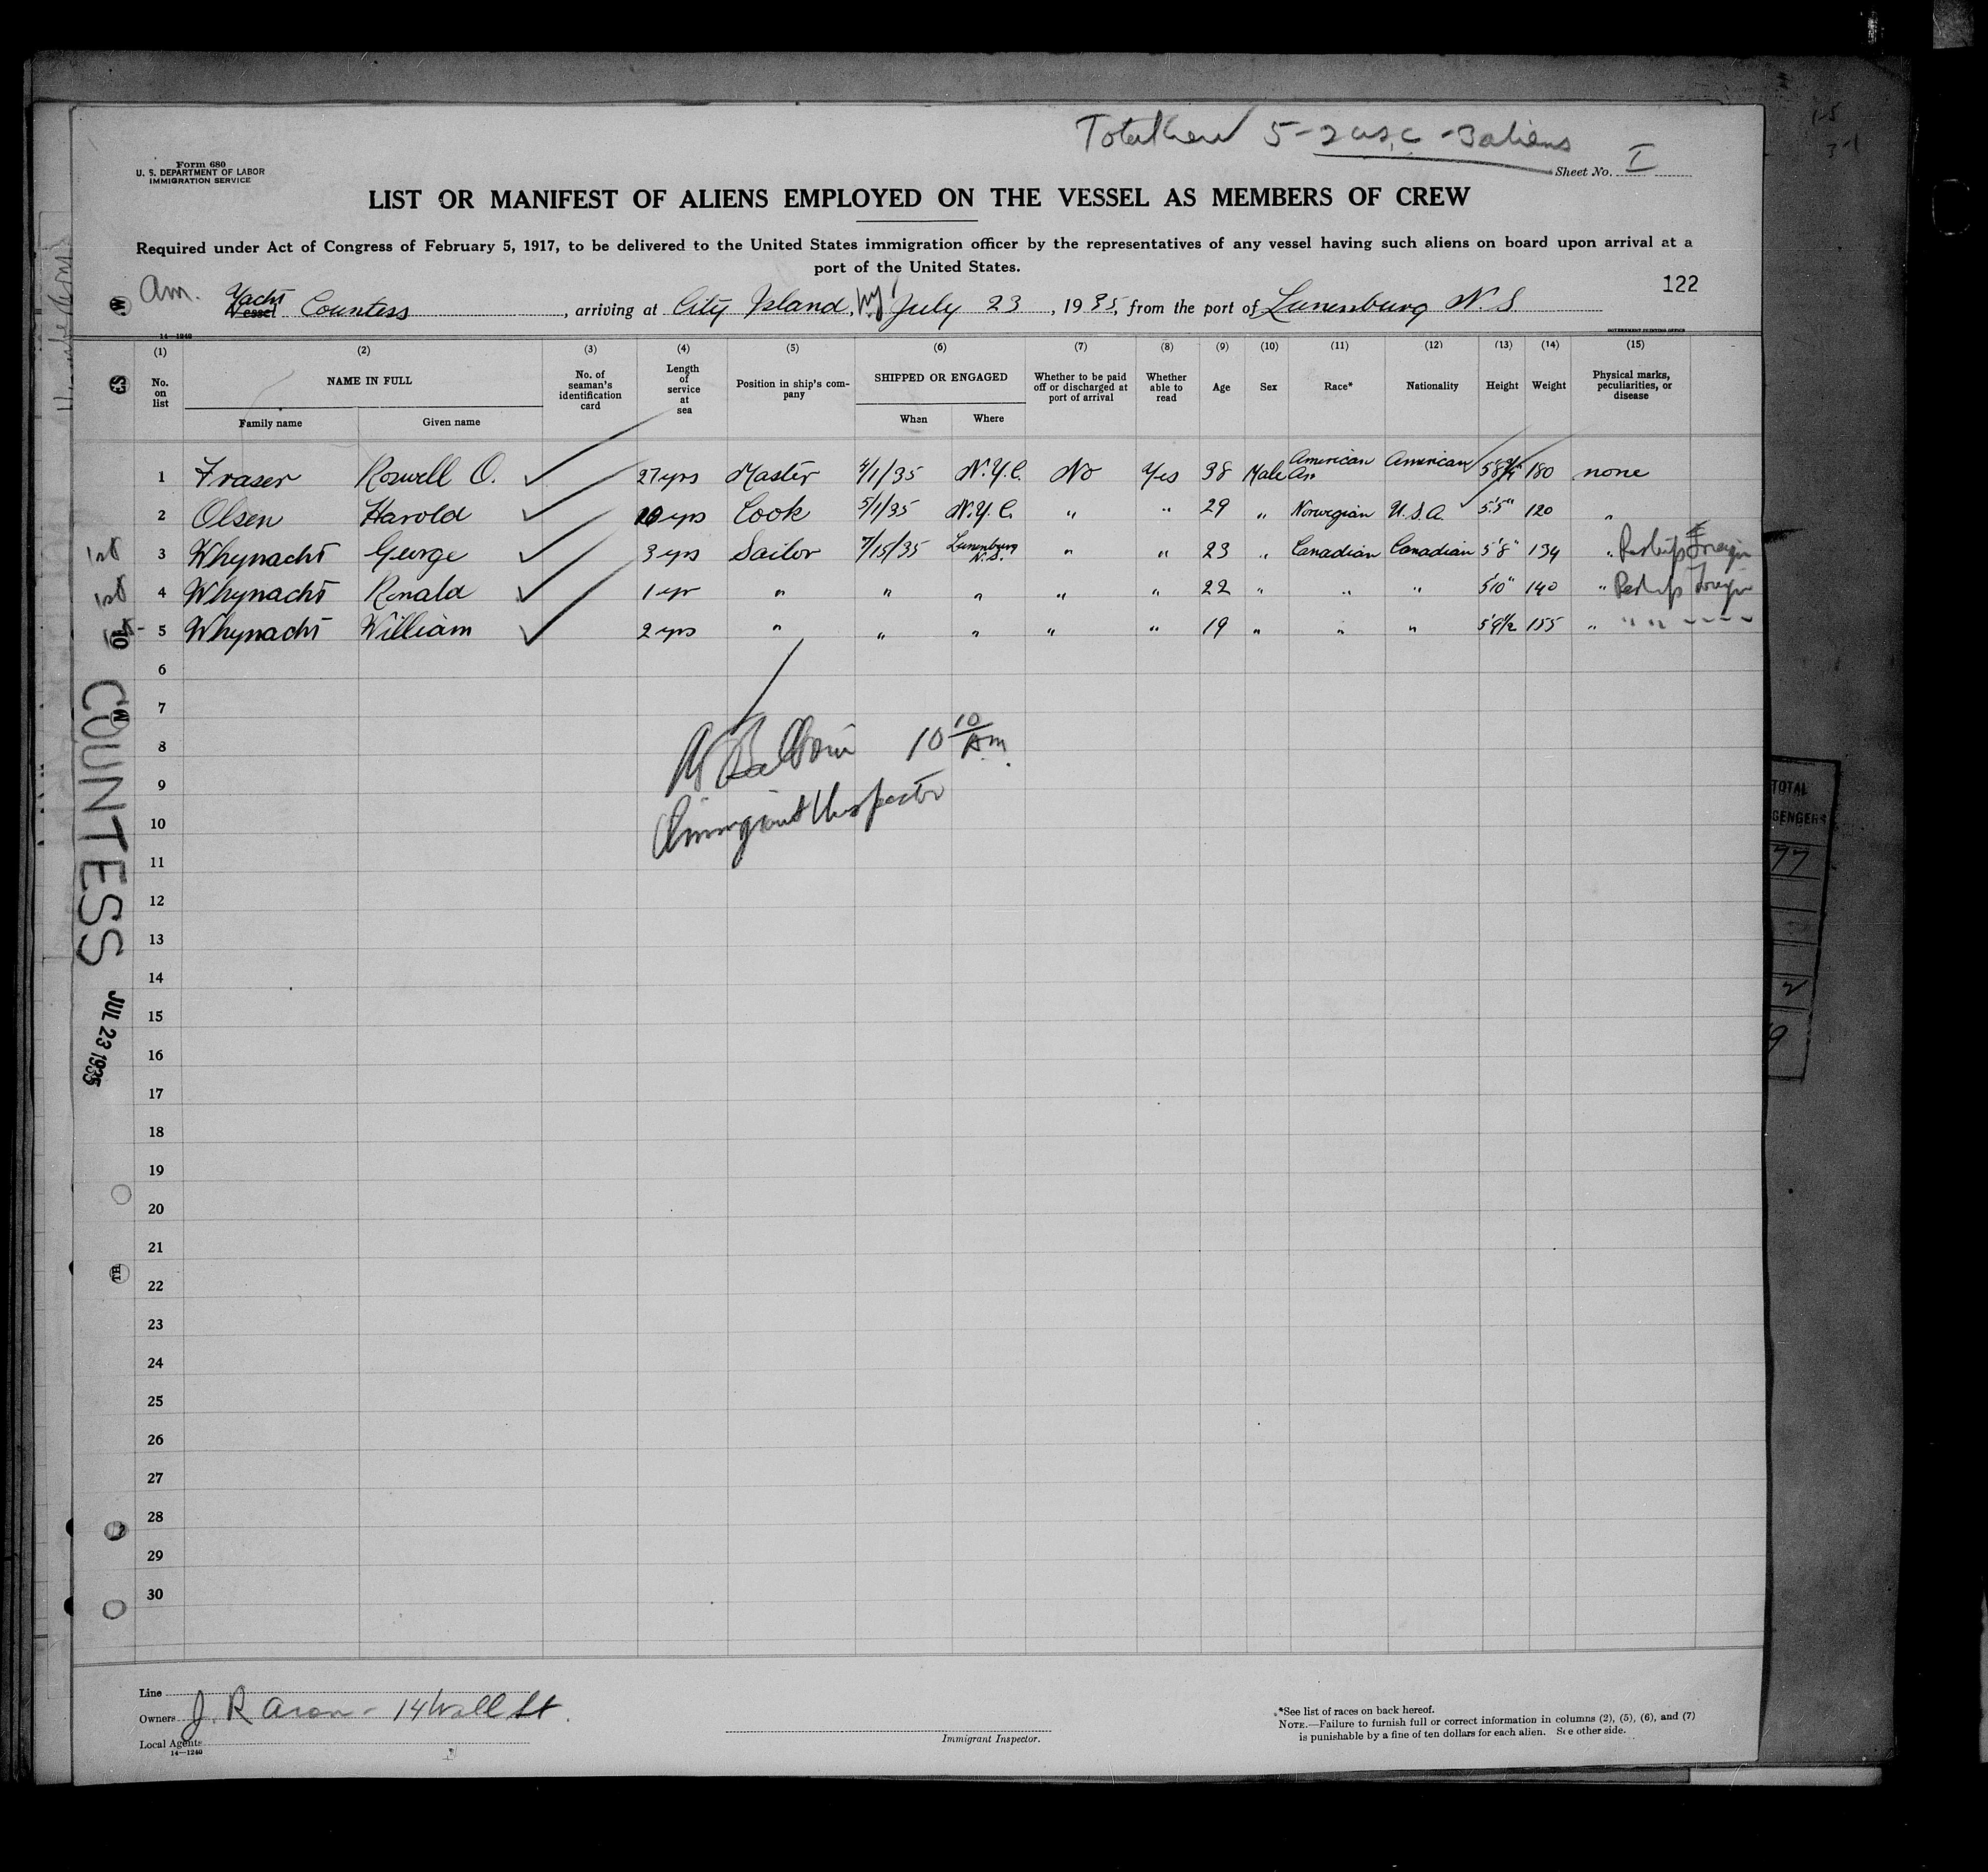 Total Crew 5 - 2 U.S.C - 3 aliens
Form 680
U. S. DEPARTMENT OF LABOR
IMMIGRATION SERVICE
Sheet No. I
LIST OR MANIFEST OF ALIENS EMPLOYED ON THE VESSEL AS MEMBERS OF CREW
Required under Act of Congress of February 5, 1917, to be delivered to the United States immigration officer by the representatives of any vessel having such aliens on board upon arrival at a
port of the United States.
122
Am. Yacht Vessel Countess, arriving at City Island, NY July 23, 1935, from the port of Lunenburg N.S.
14—1240
GOVERNMENT PRINTING OFFICE
(1) (2) (3) (4) (5) (6) (7) (8) (9) (10) (11) (12) (13) (14) (15)
No. on list NAME IN FULL No. of seaman's identification card Length of service at sea Position in ship's company SHIPPED OR ENGAGED Whether to be paid off or discharged at port of arrival Whether able to read Age Sex Race* Nationality Height Weight Physical marks, peculiarities, or disease
Family name Given name When Where
1 Fraser Roswell O. 27 yrs Master 4/1/35 N.Y.C. No Yes 38 Male American American 5'8¾" 180 none
2 Olsen Harold 10 yrs Cook 5/1/35 N.Y.C. " " 29 " Norwegian U.S.A. 5'5" 120 "
1st 3 Whynacht George 3 yrs Sailor 7/15/35 Lunenburg N.S. " " 23 " Canadian Canadian 5'8" 134 " Reships Foreign
1st 4 Whynacht Ronald 1 yr " " " " " 22 " " " 5'10" 140 " Reships Foreign
5 Whynacht William 2 yrs " " " " " 19 " " " 5'9½ 155 " " " " "
6
7
8
9
10
11
12
13
14
15
16
17
18
19
20
21
22
23
24
25
26
27
28
29
30
Baldwin 10 10/AM
Immigrant Inspector
COUNTESS
JUL 23 1935
TOTAL
77
Line
Owners J. R Aron - 14 Wall St.
Local Agents
14—1240
Immigrant Inspector.
*See list of races on back hereof.
NOTE.—Failure to furnish full or correct information in columns (2), (5), (6), and (7)
is punishable by a fine of ten dollars for each alien. See other side.